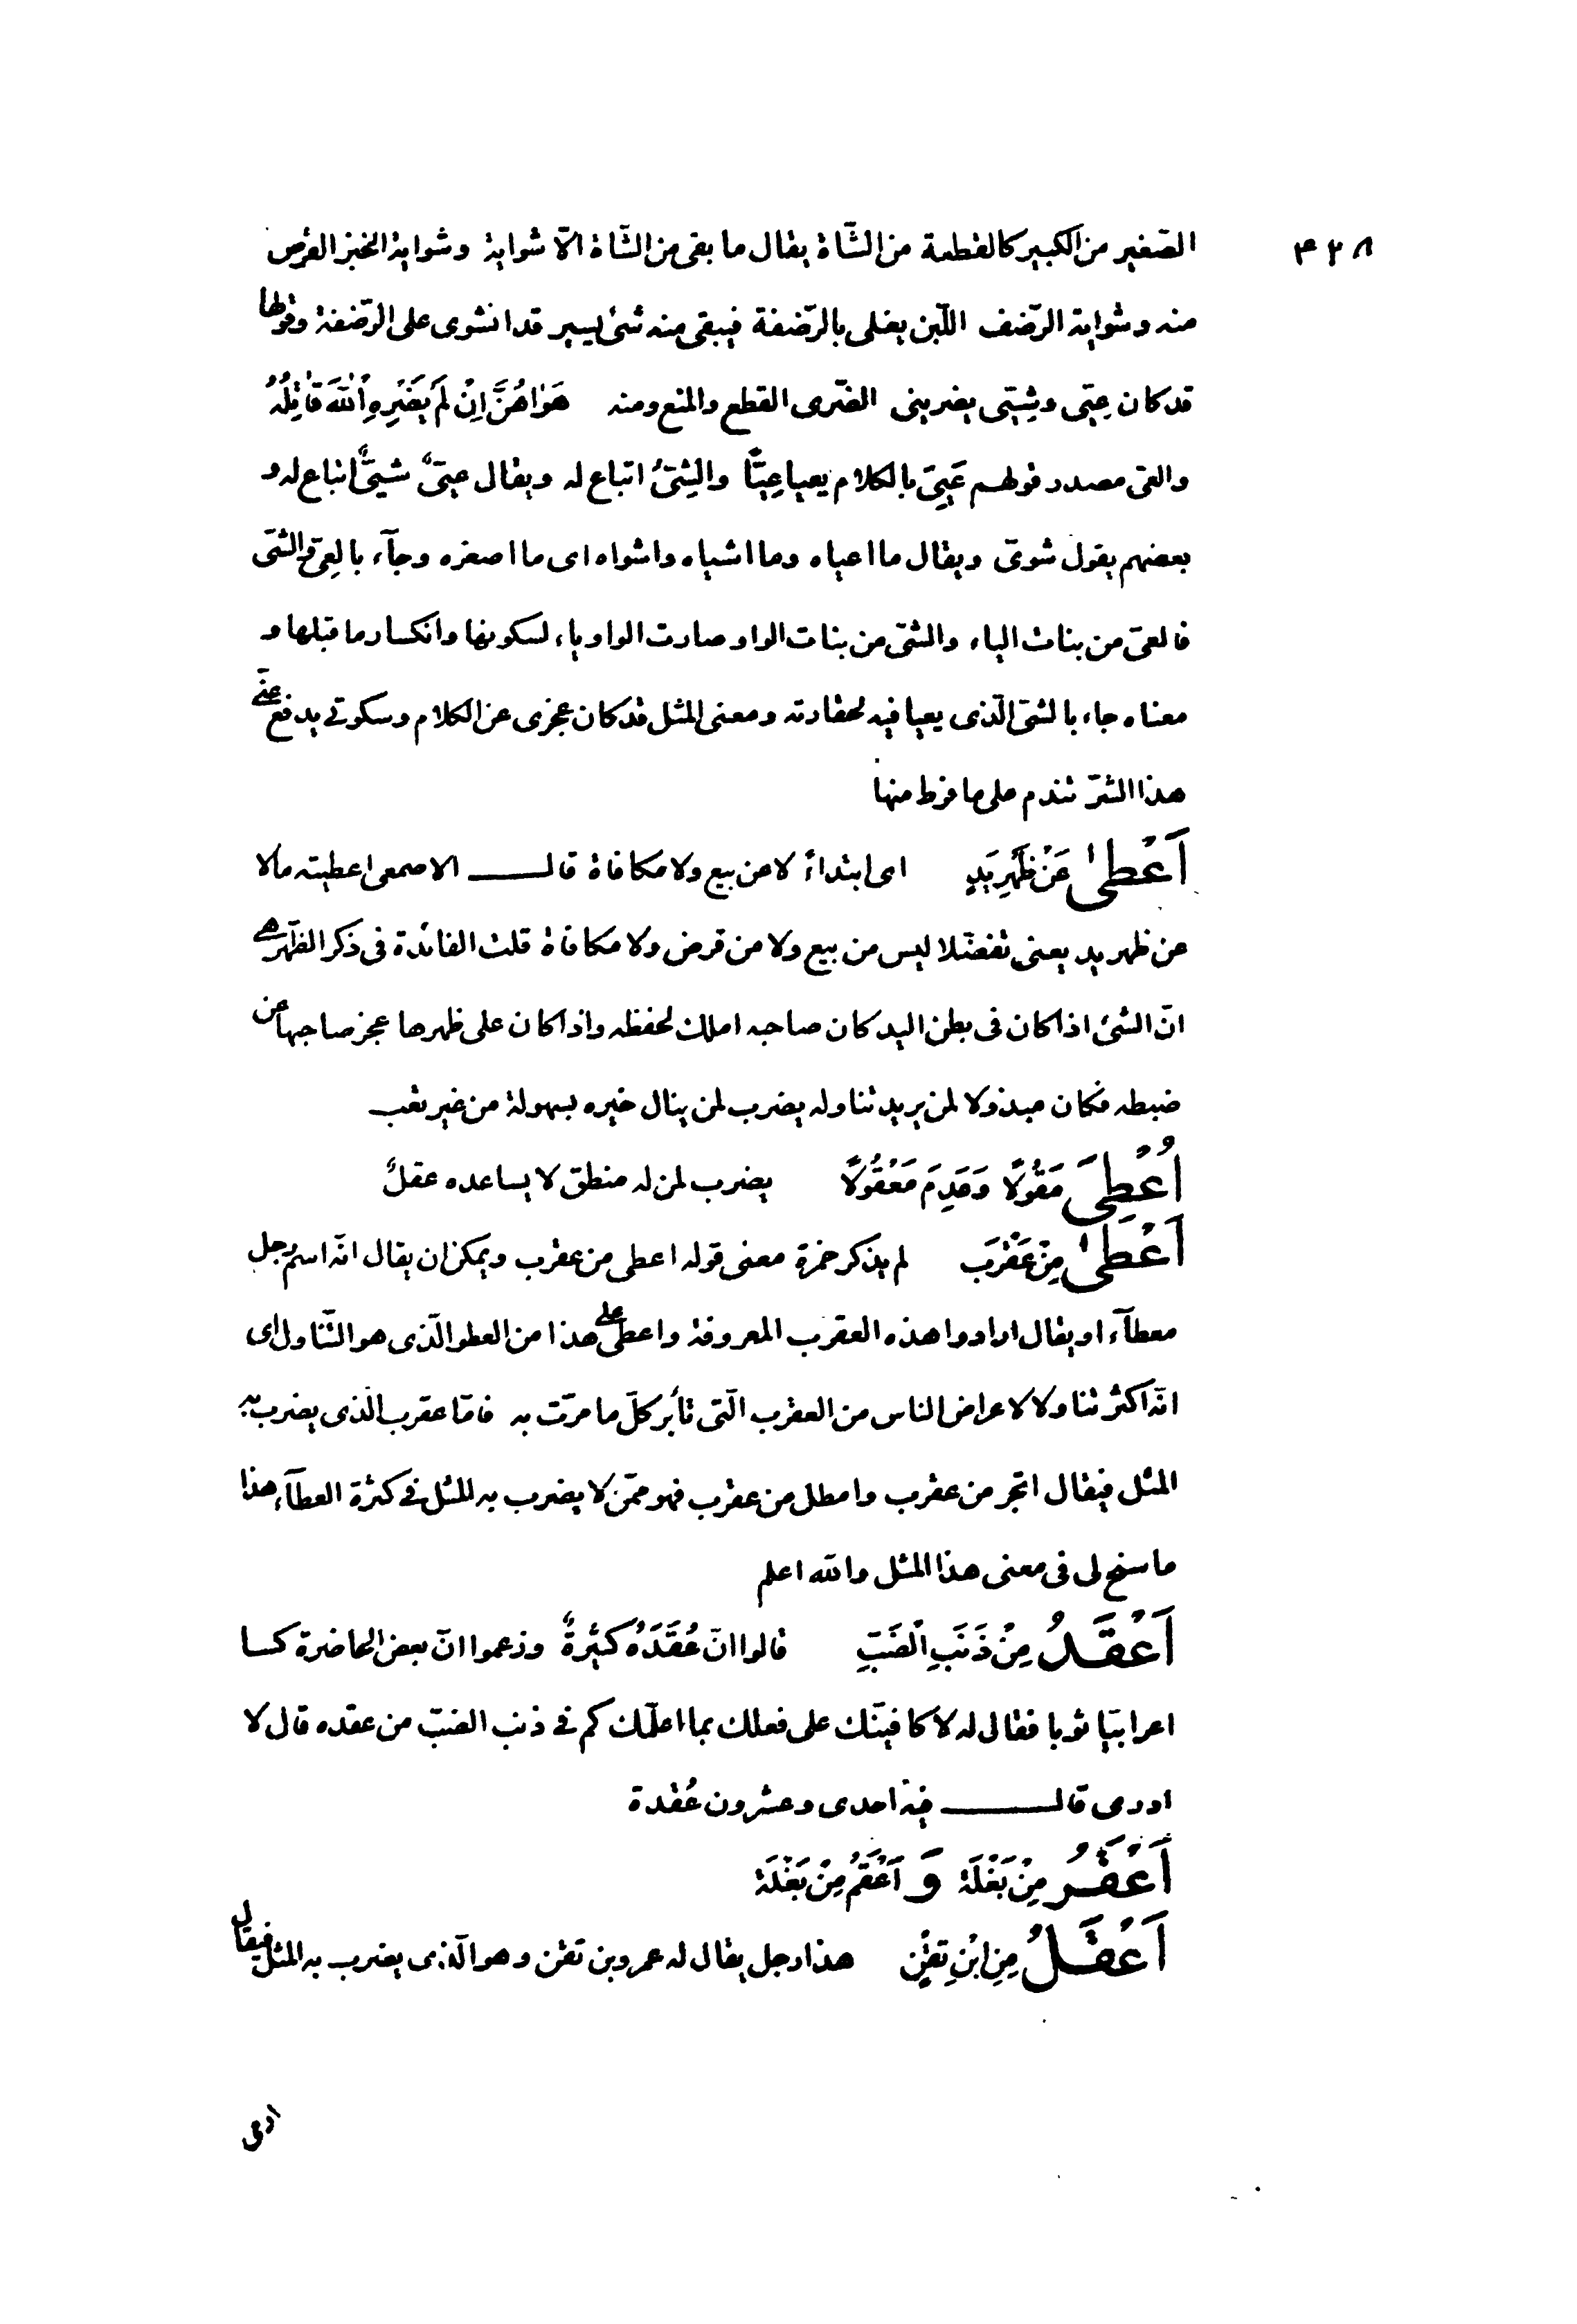 ۴۲۸
الصّغير من الكبير كالقطعة من الشّاة يقال ما بقى من الشّاة الّا شواية وشواية الخبز القرص
منه وشواية الرّضف اللّبن يغلى بالرّضفة فيبقى منه شئ يسير قد انشوى على الرّضفة وقولها
قد كان عِيّى وشِيّى يضرينى الضّرى القطع والمنع ومنه هَوَاهُنَّ اِنْ لَمْ يَضْرِهِ اللهُ قَاتِلُهُ
والعى مصدر قولهم عَيِىَ بالكلام يعيا عِيًّا والشِىّ اتباع له ويقال عيىّ شيىّ اتباع له و
بعضهم يقول شوىّ ويقال ما اعياه وما اشياه واشواه اى ما اصغره وجآء بالعِىّ والشىّ
فالعىّ من بنات الياء والشىّ من بنات الواو صارت الواو ياء لسكونها وانكسار ما قبلها و
معناه جاء بالشئ الّذى يعيا فيه لحقارته ومعنى المثل قد كان عجزى عن الكلام وسكوتى يدفع عنّى
هذا الشرّ تندم على ما فرط منها
اَعْطىٰ عَنْ ظَهْرِ يَدٍ اى ابتداءً لا من بيع ولا مكافاة قال الاصمعى اعطيته مالا
عن ظهر يد يعنى تفضّلا ليس من بيع ولا من قرض ولا مكافاة قلت الفائدة فى ذكر الظّهر هى
انّ الشئ اذا كان فى بطن اليد كان صاحبه املك لحفظه واذا كان على ظهرها عجز صاحبها عن
ضبطه فكان مبذولا لمن يريد تناوله يضرب لمن ينال خيره بسهولة من غير تعب
اُعْطِىَ مَقُولًا وَعَدِمَ مَعْقُولًا يضرب لمن له منطق لا يساعده عقلٌ
اَعْطىٰ مِنْ عَقْرَبَ لم يذكر حمزة معنى قوله اعطى من عقرب ويمكن ان يقال انّه اسم رجل
معطآء او يقال ارادوا هذه العقرب المعروفة واعطى على هذا من العطو الّذى هو التّناول اى
انّه اكثر تناولا لاعراض الناس من العقرب الّتى تأبر كلّ ما مرّت به فامّا عقرب الّذى يضرب به
المثل فيقال اتجر من عقرب وامطل من عقرب فهو ممّن لا يضرب به المثل فى كثرة العطآء هذا
ما سنح لى فى معنى هذا المثل والله اعلم
اَعْقَدُ مِنْ ذَنَبِ الضَّبِّ قالوا انّ عُقَدَهُ كَثِيرَةٌ وزعموا انّ بعض الحاضرة كسا
اعرابيّا ثوبا فقال له لاكافينّك على فعلك بما اعلّمك كم فى ذنب الضبّ من عقده قال لا
ادرى قال فيه احدى وعشرون عُقدة
اَعْقَرُ مِنْ بَغْلَة وَ اَعْقَمُ مِنْ بَغْلَة
اَعْقَلُ مِنِ ابْنِ تِقْنٍ هذا رجل يقال له عمرو بن تقن وهو الّذى يضرب به المثل فيقال
ارمى